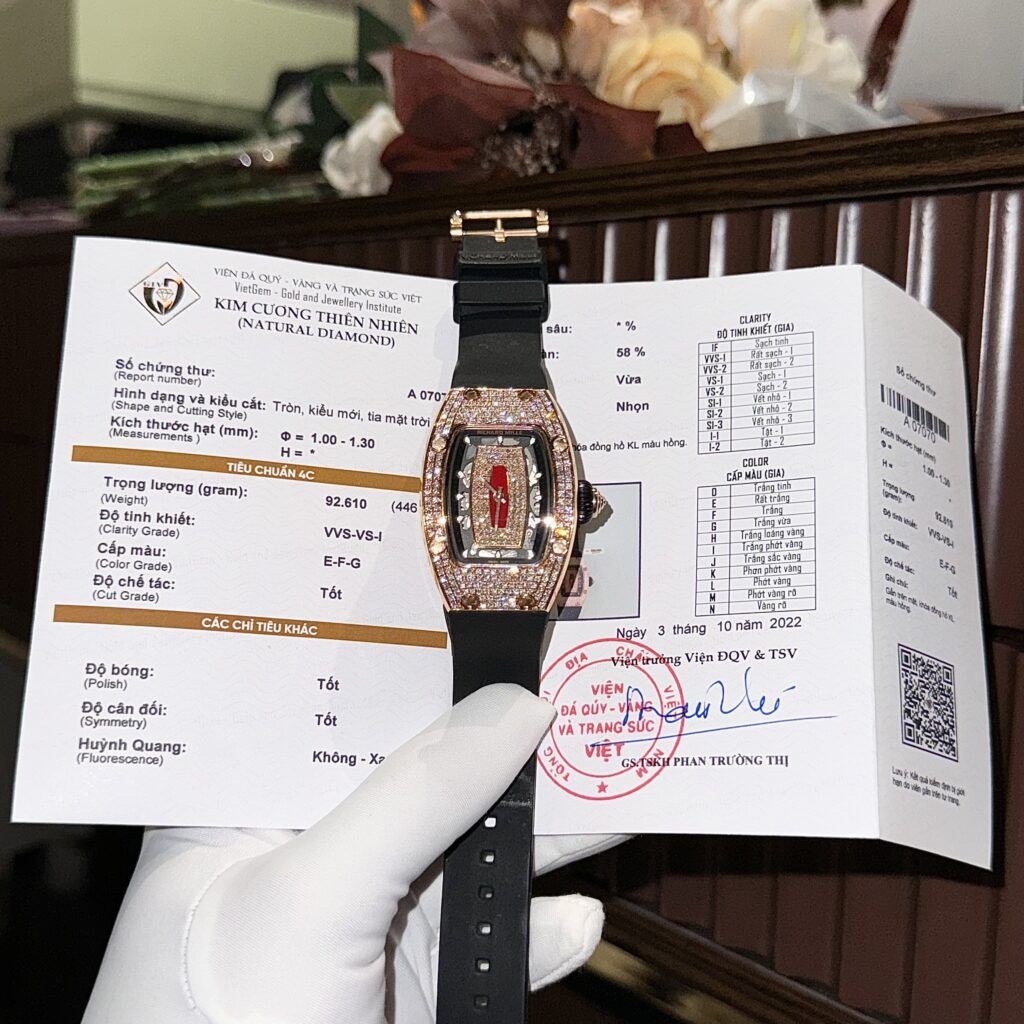 RICHARD MILLE
VIỆN ĐÁ QUÝ - VÀNG VÀ TRANG SỨC VIỆT
VietGem - Gold and Jewellery Institute
KIM CƯƠNG THIÊN NHIÊN
(NATURAL DIAMOND)
Số chứng thư:
(Report number)
A 0707
Hình dạng và kiểu cắt: Tròn, kiểu mới, tia mặt trời
(Shape and Cutting Style)
Kích thước hạt (mm): Φ = 1.00 - 1.30
(Measurements )
H = *
TIÊU CHUẨN 4C
Trọng lượng (gram): 92.610 (446
(Weight)
Độ tinh khiết: VVS-VS-I
(Clarity Grade)
Cấp màu: E-F-G
(Color Grade)
Độ chế tác: Tốt
(Cut Grade)
CÁC CHỈ TIÊU KHÁC
Độ bóng: Tốt
(Polish)
Độ cân đối: Tốt
(Symmetry)
Huỳnh Quang: Không - Xa
(Fluorescence)
RICHARD MILLE
sâu: * %
58 %
Vừa
Nhọn
khóa đồng hồ KL màu hồng.
CLARITY
ĐỘ TINH KHIẾT (GIA)
IF Sạch tinh
VVS-1 Rất sạch - 1
VVS-2 Rất sạch - 2
VS-1 Sạch - 1
VS-2 Sạch - 2
SI-1 Vết nhỏ - 1
SI-2 Vết nhỏ - 2
SI-3 Vết nhỏ - 3
I-1 Tạt - 1
I-2 Tạt - 2
COLOR
CẤP MÀU (GIA)
D Trắng tinh
E Rất trắng
F Trắng
G Trắng vừa
H Trắng loáng vàng
I Trắng phớt vàng
J Trắng sắc vàng
K Phơn phớt vàng
L Phớt vàng
M Phớt vàng rõ
N Vàng rõ
Ngày 3 tháng 10 năm 2022
Viện trưởng Viện ĐQV & TSV
VIỆN
ĐÁ QUÝ - VÀNG
VÀ TRANG SỨC
VIỆT
GS.TSKH PHAN TRƯỜNG THỊ
Số chứng thư
A 07070
Kích thước hạt (mm):
Φ = 1.00 - 1.30
H = *
Trọng lượng
(gram): 92.610
Độ tinh khiết: VVS-VS-I
Cấp màu: E-F-G
Độ chế tác: Tốt
Ghi chú:
Gắn trên mặt, khóa đồng hồ KL
màu hồng.
Lưu ý: Kết quả kiểm định bị giới
hạn do viên gắn trên tư trang.